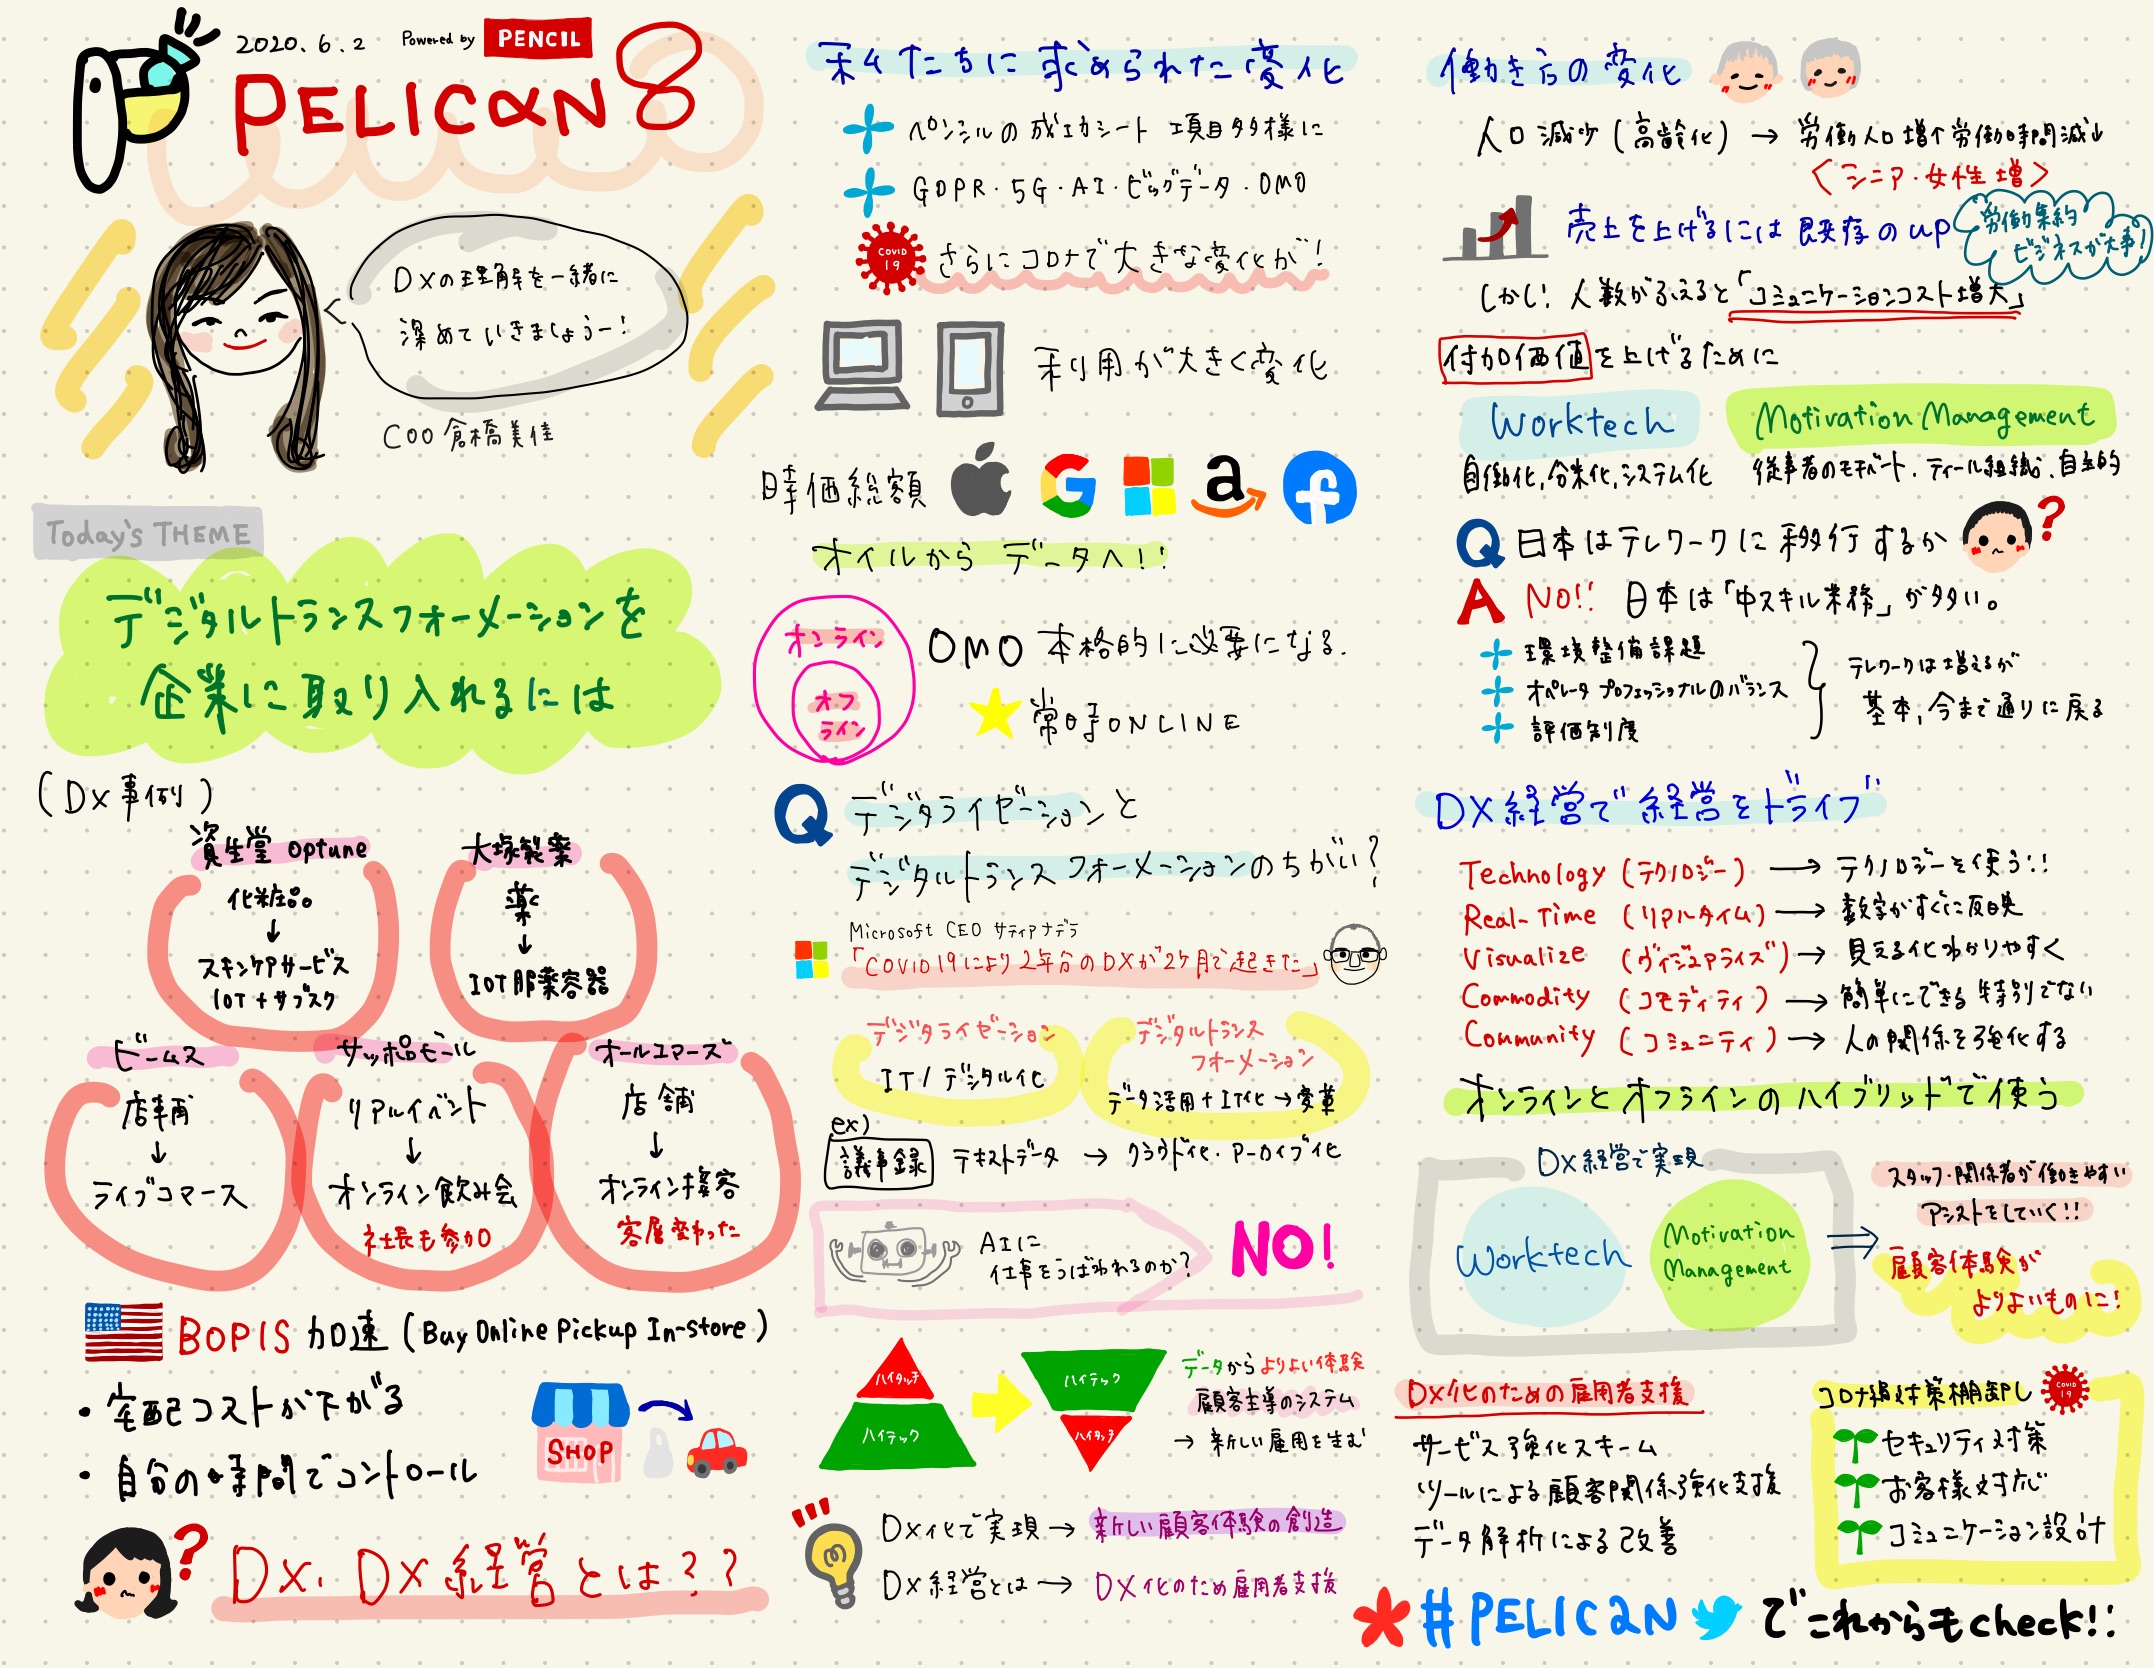 2020.6.2 Powered by PENCIL
PELICAN 8
DXの理解を一緒に
深めていきましょうー!
COO 倉橋美佳
Today's THEME
デジタルトランスフォーメーションを
企業に取り入れるには
(DX事例)
資生堂 optune
化粧品。
↓
スキンケアサービス
IOT+サブスク
大塚製薬
薬
↓
IOT服薬容器
ビームス
店舗
↓
ライブコマース
サッポロビール
リアルイベント
↓
オンライン飲み会
社長も参加
オールユアーズ
店舗
↓
オンライン接客
客層変わった
BOPIS 加速 (Buy Online Pickup In-store)
・宅配コストが下がる
・自分の時間でコントロール
SHOP
? DX、DX経営とは??
私たちに求められた変化
ペンシルの成功シート 項目多様に
GDPR・5G・AI・ビッグデータ・OMO
COVID
19
さらにコロナで大きな変化が!
利用が大きく変化
時価総額 G a f
オイルから データへ!!
オンライン
オフ
ライン
OMO 本格的に必要になる.
常時ONLINE
Q デジタライゼーションと
デジタルトランスフォーメーションのちがい?
Microsoft CEO サティアナデラ
「COVID19により2年分のDXが2ケ月で起きた」
デジタライゼーション
IT/デジタル化
デジタルトランス
フォーメーション
データ活用+IT化→変革
ex)
議事録 テキストデータ → クラウド化・アーカイブ化
AIに
仕事をうばわれるのか?
NO!
ハイタッチ
ハイテック
ハイテック
ハイタッチ
データからよりよい体験
顧客主導のシステム
→ 新しい雇用を生む
DX化で実現→ 新しい顧客体験の創造
DX経営とは→ DX化のため雇用者支援
働き方の変化
人口減少(高齢化) → 労働人口増↑労働時間減↓
<シニア・女性増>
売上を上げるには既存のup
労働集約
ビジネスが大事!
しかし! 人数がふえると「コミュニケーションコスト増大」
付加価値を上げるために
Worktech
自働化,分業化,システム化
Motivation Management
従事者のモチベート.ティール組織.自主的
Q 日本はテレワークに移行するか ?
A NO!! 日本は「中スキル業務」が多い。
環境整備課題
オペレータ プロフェッショナルのバランス
評価制度
テレワークは増えるが
基本,今まで通りに戻る
DX経営で経営をドライブ
Technology (テクノロジー) → テクノロジーを使う!!
Real-Time (リアルタイム) → 数字がすぐに反映
Visualize (ヴィジュアライズ) → 見える化わかりやすく
Commodity (コモディティ) → 簡単にできる 特別でない
Community (コミュニティ) → 人の関係を強化する
オンラインとオフラインのハイブリッドで使う
DX経営で実現
Worktech
Motivation
Management
スタッフ・関係者が働きやすい
アシストをしていく!!
顧客体験が
よりよいものに!
DX化のための雇用者支援
サービス強化スキーム
ツールによる顧客関係強化支援
データ解析による改善
コロナ禍対策棚卸し
COVID
19
セキュリティ対策
お客様対応
コミュニケーション設計
#PELICAN でこれからもcheck!!